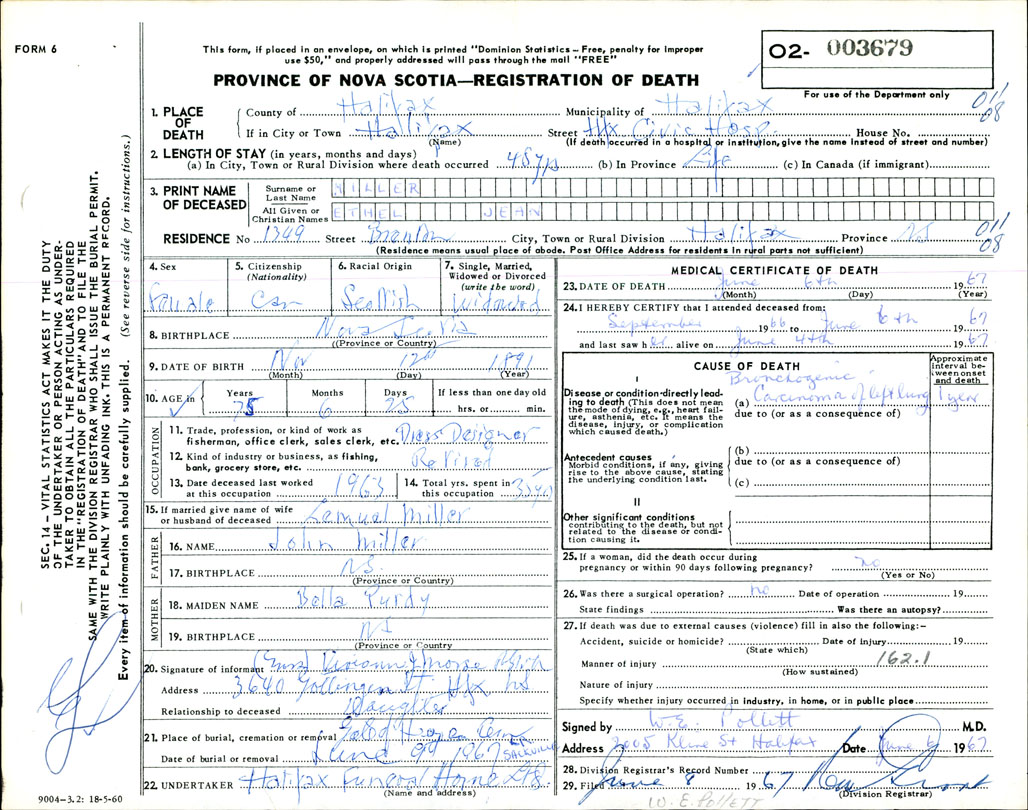 FORM 6
This form, if placed in an envelope, on which is printed "Dominion Statistics – Free, penalty for improper
use $50," and properly addressed will pass through the mail "FREE"
PROVINCE OF NOVA SCOTIA—REGISTRATION OF DEATH
O2- 003679
For use of the Department only
011
08
SEC. 14 – VITAL STATISTICS ACT MAKES IT THE DUTY
OF THE UNDERTAKER OR PERSON ACTING AS UNDER-
TAKER TO OBTAIN ALL THE PARTICULARS REQUIRED
IN THE "REGISTRATION OF DEATH" AND TO FILE THE
SAME WITH THE DIVISION REGISTRAR WHO SHALL ISSUE THE BURIAL PERMIT.
WRITE PLAINLY WITH UNFADING INK. THIS IS A PERMANENT RECORD.
Every item of information should be carefully supplied. (See reverse side for instructions.)
1. PLACE OF DEATH
County of Halifax Municipality of Halifax
If in City or Town Halifax Street Hfx Civic Hosp. House No.
(Name) (If death occurred in a hospital or institution, give the name instead of street and number)
2. LENGTH OF STAY (in years, months and days)
(a) In City, Town or Rural Division where death occurred 48 yrs (b) In Province Life (c) In Canada (if immigrant)
3. PRINT NAME OF DECEASED
Surname or Last Name MILLER
All Given or Christian Names ETHEL JEAN
RESIDENCE No 1349 Street City, Town or Rural Division Halifax Province NS
011
08
(Residence means usual place of abode. Post Office Address for residents in rural parts not sufficient)
4. Sex Female
5. Citizenship (Nationality) Can
6. Racial Origin Scottish
7. Single, Married, Widowed or Divorced (write the word) Widowed
8. BIRTHPLACE Nova Scotia
((Province or Country)
9. DATE OF BIRTH Nov 12th 1891
(Month) (Day) (Year)
10. AGE in Years 75 Months 6 Days 25 If less than one day old hrs. or min.
OCCUPATION
11. Trade, profession, or kind of work as
fisherman, office clerk, sales clerk, etc. Dress Designer
12. Kind of industry or business, as fishing,
bank, grocery store, etc. Retired
13. Date deceased last worked
at this occupation 1963
14. Total yrs. spent in
this occupation 35 yrs
15. If married give name of wife
or husband of deceased Lemual Miller
FATHER
16. NAME John Miller
17. BIRTHPLACE N.S.
(Province or Country)
MOTHER
18. MAIDEN NAME Bella Purdy
19. BIRTHPLACE NS
(Province or Country
20. Signature of informant (Mrs)
Address 3640 Gottingen St. Hfx NS
Relationship to deceased Daughter
21. Place of burial, cremation or removal
LR SACKVILLE
Date of burial or removal June 9th 1967
22. UNDERTAKER Halifax Funeral Home Ltd.
(Name and address)
9004–3.2: 18-5-60
MEDICAL CERTIFICATE OF DEATH
23. DATE OF DEATH June 6th 1967
(Month) (Day) (Year)
24. I HEREBY CERTIFY that I attended deceased from:
September 1966 to June 6th 1967
and last saw her alive on June 4th 1967
CAUSE OF DEATH
Approximate interval between onset and death
I
Disease or condition directly leading to death (This does not mean the mode of dying, e.g., heart failure, asthenia, etc. It means the disease, injury, or complication which caused death.)
(a) Bronchogenic Carcinoma of left lung 1 year
due to (or as a consequence of)
Antecedent causes
Morbid conditions, if any, giving rise to the above cause, stating the underlying condition last.
(b)
due to (or as a consequence of)
(c)
II
Other significant conditions
contributing to the death, but not related to the disease or condition causing it.
25. If a woman, did the death occur during
pregnancy or within 90 days following pregnancy? no
(Yes or No)
26. Was there a surgical operation? no Date of operation 19
State findings Was there an autopsy?
27. If death was due to external causes (violence) fill in also the following:–
Accident, suicide or homicide? Date of injury 19
(State which)
Manner of injury 162.1
(How sustained)
Nature of injury
Specify whether injury occurred in industry, in home, or in public place
Signed by W. E. Pollett M.D.
Address 2005 Kline St Halifax Date June 6 1967
28. Division Registrar's Record Number
29. Filed June 8 1967
(Division Registrar)
W. E. POLLETT